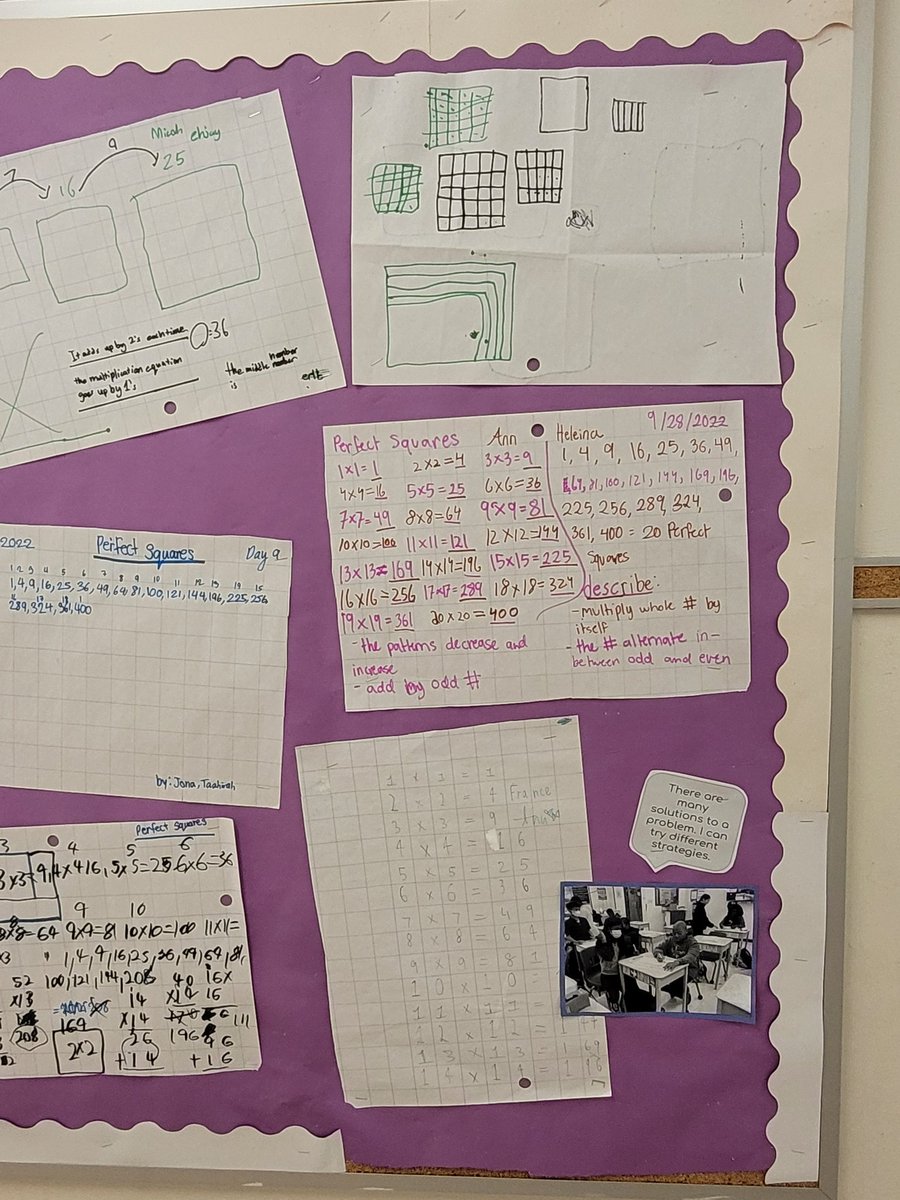 Micah
9
16
25
It adds up by 2's each time
=36
the multiplication equation
goes up by 1's
number
the middle number
is
Perfect Squares Ann
1x1=1 2x2=4 3x3=9
4x4=16 5x5=25 6x6=36
7x7=49 8x8=64 9x9=81
10x10=100 11x11=121 12x12=144
13x13=169 14x14=196 15x15=225
16x16=256 17x17=289 18x18=324
19x19=361 20x20=400
-the patterns decrease and
increase
- add by odd #
9/28/2022
Heleina
1, 4, 9, 16, 25, 36, 49,
64, 81, 100, 121, 144, 169, 196,
225, 256, 289, 324,
361, 400 = 20 Perfect
Squares
describe:
-multiply whole # by
itself
-the # alternate in-
between odd and even
2022 Perfect Squares Day 9
1,4,9,16,25,36,49,64,81,100,121,144,196,225,256
289,324,361,400
by: Jana, Taahirah
Perfect Squares
3 4 5 6
3x3=9, 4x416, 5x5=25 6x6=36
9 10
8x8=64 9x9=81 10x10=100 11x11=
52
x13
208
169
2x2
14
x14
+14
196
16x
16
+16
1 x 1 = 1
2 x 2 = 4 France
3 x 3 = 9
4 x 4 = 16
5 x 5 = 25
6 x 6 = 36
7 x 7 = 49
8 x 8 = 64
9 x 9 = 81
10 x 10 =
11 x 11 =
13 x 13 = 169
14 x 14 = 196
There are
many
solutions to a
problem. I can
try different
strategies.